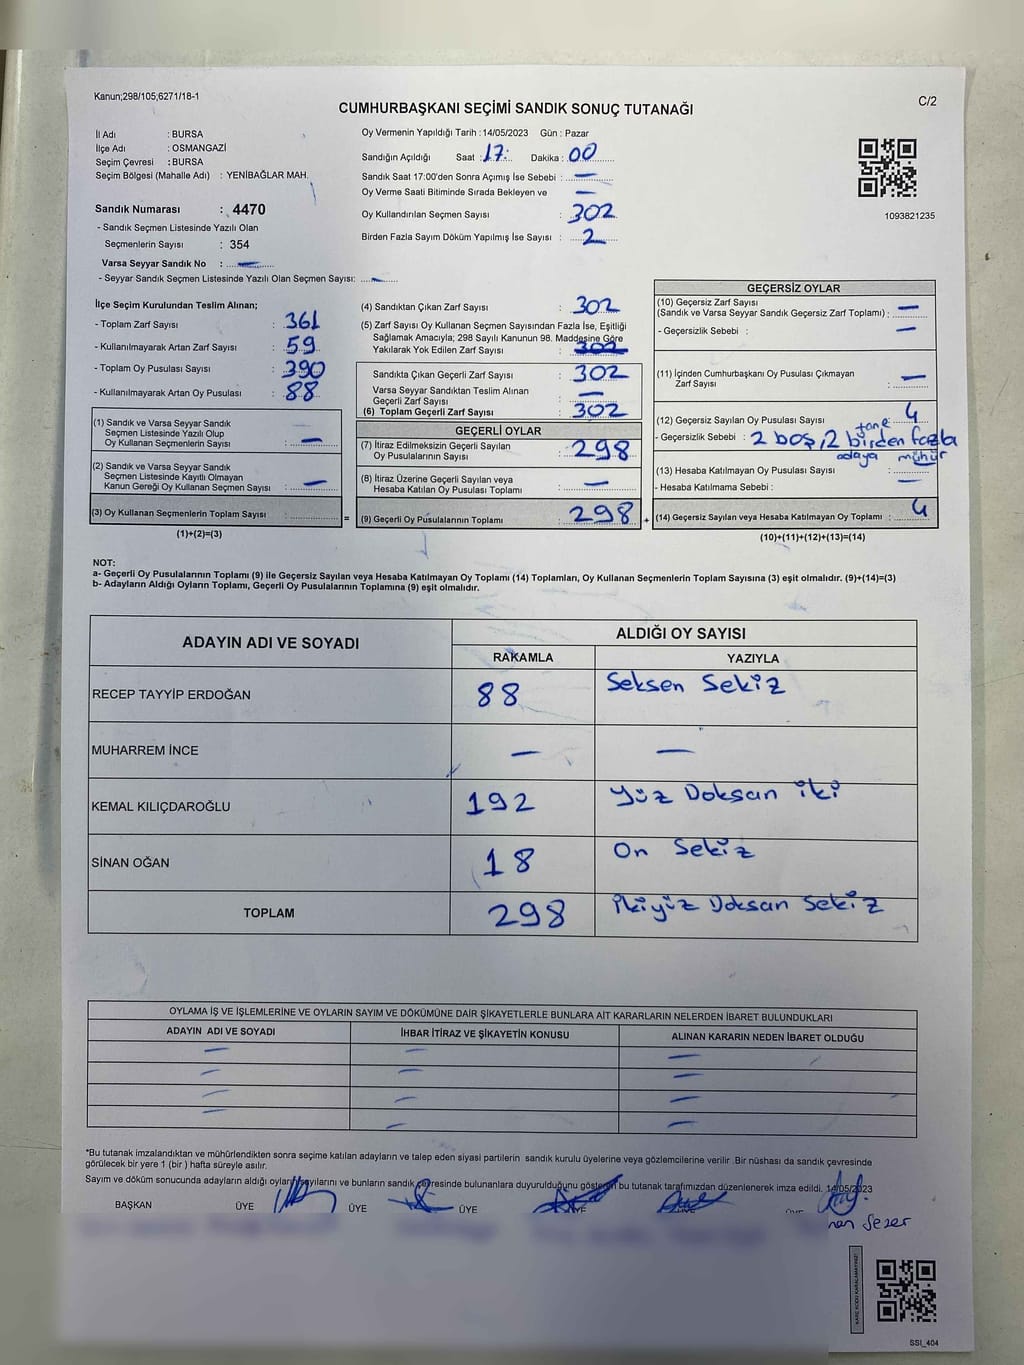 Kanun;298/105;6271/18-1
C/2
CUMHURBAŞKANI SEÇİMİ SANDIK SONUÇ TUTANAĞI
İl Adı : BURSA
İlçe Adı : OSMANGAZİ
Seçim Çevresi : BURSA
Seçim Bölgesi (Mahalle Adı) : YENİBAĞLAR MAH.
Sandık Numarası : 4470
- Sandık Seçmen Listesinde Yazılı Olan
Seçmenlerin Sayısı : 354
Varsa Seyyar Sandık No : —
- Seyyar Sandık Seçmen Listesinde Yazılı Olan Seçmen Sayısı: —
Oy Vermenin Yapıldığı Tarih : 14/05/2023 Gün : Pazar
Sandığın Açıldığı Saat : 17: Dakika : 00
Sandık Saat 17:00'den Sonra Açımış İse Sebebi : —
Oy Verme Saati Bitiminde Sırada Bekleyen ve —
Oy Kullandırılan Seçmen Sayısı : 302
Birden Fazla Sayım Döküm Yapılmış İse Sayısı : 2
1093821235
İlçe Seçim Kurulundan Teslim Alınan;
- Toplam Zarf Sayısı : 361
- Kullanılmayarak Artan Zarf Sayısı : 59
- Toplam Oy Pusulası Sayısı : 390
- Kullanılmayarak Artan Oy Pusulası : 88
(1) Sandık ve Varsa Seyyar Sandık
Seçmen Listesinde Yazılı Olup
Oy Kullanan Seçmenlerin Sayısı : —
(2) Sandık ve Varsa Seyyar Sandık
Seçmen Listesinde Kayıtlı Olmayan
Kanun Gereği Oy Kullanan Seçmen Sayısı : —
(3) Oy Kullanan Seçmenlerin Toplam Sayısı :
(1)+(2)=(3)
(4) Sandıktan Çıkan Zarf Sayısı : 302
(5) Zarf Sayısı Oy Kullanan Seçmen Sayısından Fazla İse, Eşitliği
Sağlamak Amacıyla; 298 Sayılı Kanunun 98. Maddesine Göre
Yakılarak Yok Edilen Zarf Sayısı : 302
Sandıkta Çıkan Geçerli Zarf Sayısı : 302
Varsa Seyyar Sandıktan Teslim Alınan
Geçerli Zarf Sayısı : —
(6) Toplam Geçerli Zarf Sayısı : 302
GEÇERLİ OYLAR
(7) İtiraz Edilmeksizin Geçerli Sayılan
Oy Pusulalarının Sayısı : 298
(8) İtiraz Üzerine Geçerli Sayılan veya
Hesaba Katılan Oy Pusulası Toplamı : —
= (9) Geçerli Oy Pusulalarının Toplamı : 298 +
GEÇERSİZ OYLAR
(10) Geçersiz Zarf Sayısı
(Sandık ve Varsa Seyyar Sandık Geçersiz Zarf Toplamı) : —
- Geçersizlik Sebebi : —
(11) İçinden Cumhurbaşkanı Oy Pusulası Çıkmayan
Zarf Sayısı : —
(12) Geçersiz Sayılan Oy Pusulası Sayısı : 4 tane
- Geçersizlik Sebebi : 2 boş, 2 birden fazla
adaya mühür
(13) Hesaba Katılmayan Oy Pusulası Sayısı :
- Hesaba Katılmama Sebebi : —
(14) Geçersiz Sayılan veya Hesaba Katılmayan Oy Toplamı : 4
(10)+(11)+(12)+(13)=(14)
NOT:
a- Geçerli Oy Pusulalarının Toplamı (9) ile Geçersiz Sayılan veya Hesaba Katılmayan Oy Toplamı (14) Toplamları, Oy Kullanan Seçmenlerin Toplam Sayısına (3) eşit olmalıdır. (9)+(14)=(3)
b- Adayların Aldığı Oyların Toplamı, Geçerli Oy Pusulalarının Toplamına (9) eşit olmalıdır.
ADAYIN ADI VE SOYADI
ALDIĞI OY SAYISI
RAKAMLA YAZIYLA
RECEP TAYYİP ERDOĞAN 88 Seksen Sekiz
MUHARREM İNCE — —
KEMAL KILIÇDAROĞLU 192 Yüz Doksan iki
SİNAN OĞAN 18 On Sekiz
TOPLAM 298 İkiyüz Doksan Sekiz
OYLAMA İŞ VE İŞLEMLERİNE VE OYLARIN SAYIM VE DÖKÜMÜNE DAİR ŞİKAYETLERLE BUNLARA AİT KARARLARIN NELERDEN İBARET BULUNDUKLARI
ADAYIN ADI VE SOYADI İHBAR İTİRAZ VE ŞİKAYETİN KONUSU ALINAN KARARIN NEDEN İBARET OLDUĞU
— — —
— — —
— — —
— — —
*Bu tutanak imzalandıktan ve mühürlendikten sonra seçime katılan adayların ve talep eden siyasi partilerin sandık kurulu üyelerine veya gözlemcilerine verilir .Bir nüshası da sandık çevresinde
görülecek bir yere 1 (bir ) hafta süreyle asılır.
Sayım ve döküm sonucunda adayların aldığı oyların sayılarını ve bunların sandık çevresinde bulunanlara duyurulduğunu gösteren bu tutanak tarafımızdan düzenlenerek imza edildi. 14/05/2023
BAŞKAN ÜYE ÜYE ÜYE ÜYE
Sezer
KARE KODU KARALAMAYINIZ!
SSI_404